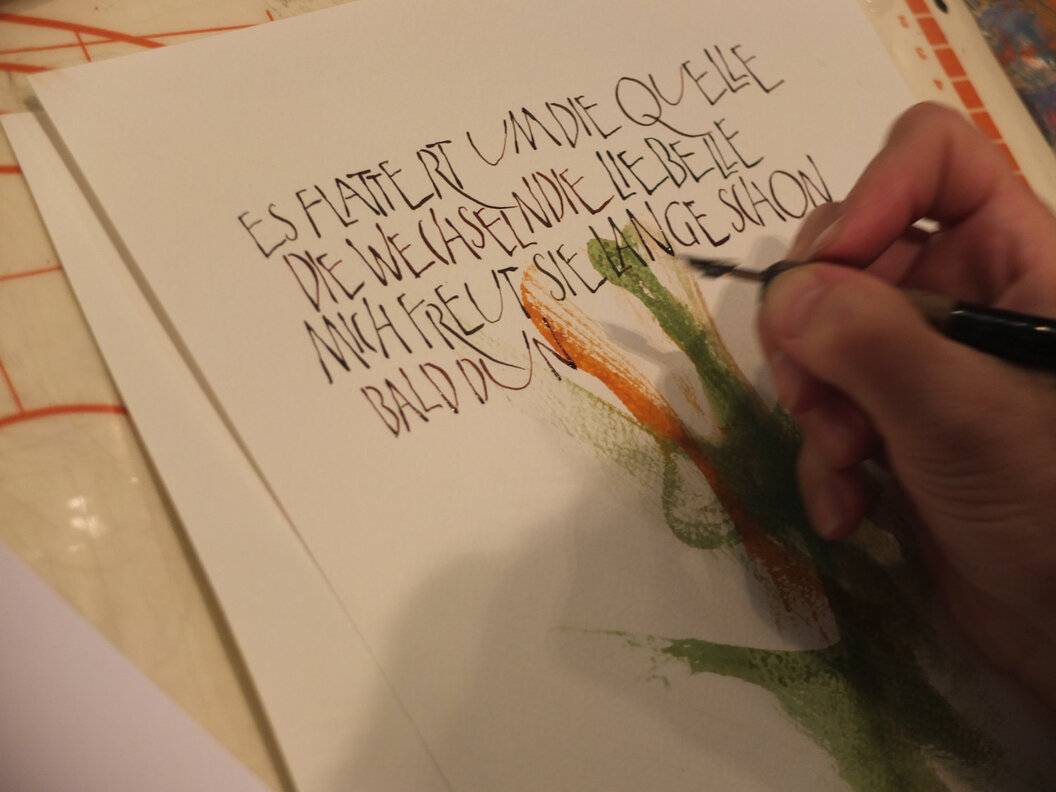 ES FLATTERT UM DIE QUELLE
DIE WECHSELNDE LIEBELLE
MICH FREUT SIE LANGE SCHON
BALD DUN